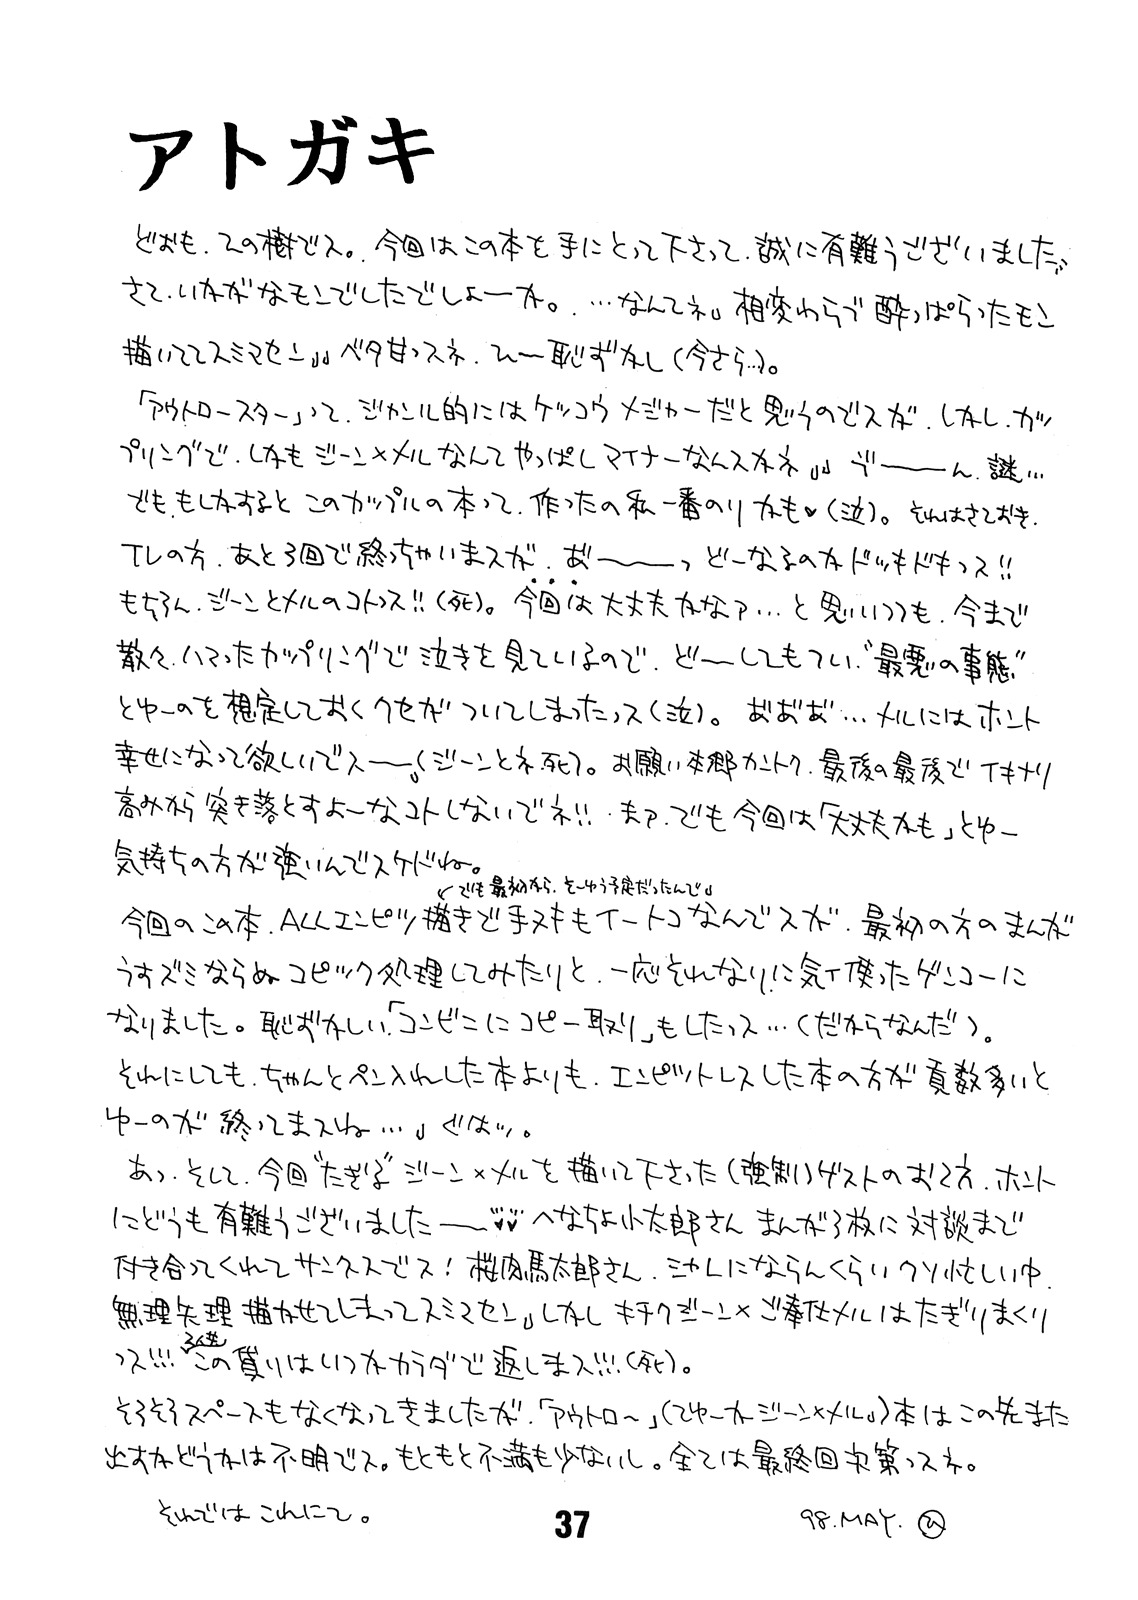 アトガキ
どおも、ひの樹でス。今回はこの本を手にとって下さって、誠に有難うございましたッ
さて、いかがなモンでしたでしょーか。…なんてネ 相変わらず酔っぱらったモン
描いててスミマセン ベタ甘っスネ、ひ〜恥ずかし(今さら…)。
「アウトロースター」って、ジャンル的にはケッコウメジャーだと思うのでスが、しかし、カッ
プリングで、しかもジーン×メルなんてやっぱしマイナーなんスかネ ゔーーん、謎…
でも、もしかすると このカップルの本って、作ったの私一番のりかも♥(泣)。それはさておき、
TVの方、あと3回で終っちゃいまスが、あ゛ーーっ どーなるのかドッキドキっス!!
もちろん、ジーンとメルのコトっス!!(死)。今回は大丈夫かなァ…と思いつつも、今まで
散々、ハマったカップリングで泣きを見ているので、どーしてもつい、"最悪の事態"
とゆーのを想定しておくクセがついてしまったっス(泣)。あ゛あ゛あ゛…メルにはホント
幸せになって欲しいでスーー(ジーンとネ、死)。お願い本郷カントク、最後の最後でイキナリ
高みから突き落とすよ〜なコトしないでネ!! まァ、でも今回は「大丈夫かも」とゆー
気持ちの方が強いんでスケドね。
↙でも最初から、そーゆう予定だったんで
今回のこの本、ALLエンピツ描きで手ヌキもイートコなんでスが、最初の方のまんが
うすズミならぬコピック処理してみたりと、一応それなりに気ィ使ったゲンコーに
なりました。恥ずかしい、「コンビニにコピー取り」もしたっス…(だからなんだ)。
それにしても、ちゃんとペン入れした本よりも、エンピツトレスした本の方が頁数多いと
ゆーのが終ってまスね… ぐはッ。
あっ、そして、今回"たぎる"ジーン×メルを描いて下さった(強制)ゲストのおて方、ホント
にどうも有難うございましたーー♥♥ へなちょ小太郎さん まんが3枚に対談まで
付き合ってくれてサンクスでス! 桜肉馬太郎さん、シャレにならんくらいクソ忙しい中、
無理矢理描かせてしまってスミマセン しかし キチクジーン×ご奉仕メルはたぎりまくり
っス!!! この貸りはいつかカラダで返しまス!!!(死)。
そろそろスペースもなくなってきましたが、「アウトロ〜」(てゆーかジーン×メル)本はこの先また
出すかどうかは不明でス。もともと不満も少ないし。全ては最終回次第っスネ。
それでは これにて。
37
98.MAY. ひ